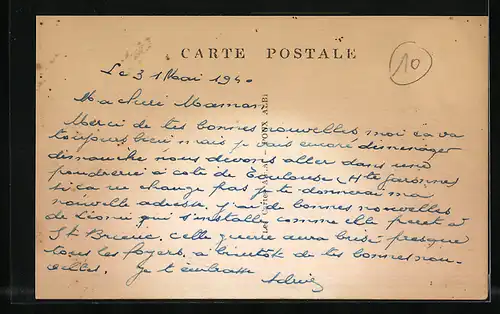 CARTE POSTALE
10
Le 31 Mai 1940
Ma cheri Maman
Merci de tes bonnes nouvelles moi ça va
toujours bien mais je vais encore déménager
dimanche nous devons aller dans une
poudrerie a cote de Toulouse (Hte Garonne
si ça ne change pas je te donnerai ma
nouvelle adresse, j'ai de bonnes nouvelles
de qui s'installe comme elle peut à
St Brieuc. Cette guerre aura brisé presque
tous les foyers, a bientôt de tes bonnes nou-
velles. Je t'embrasse